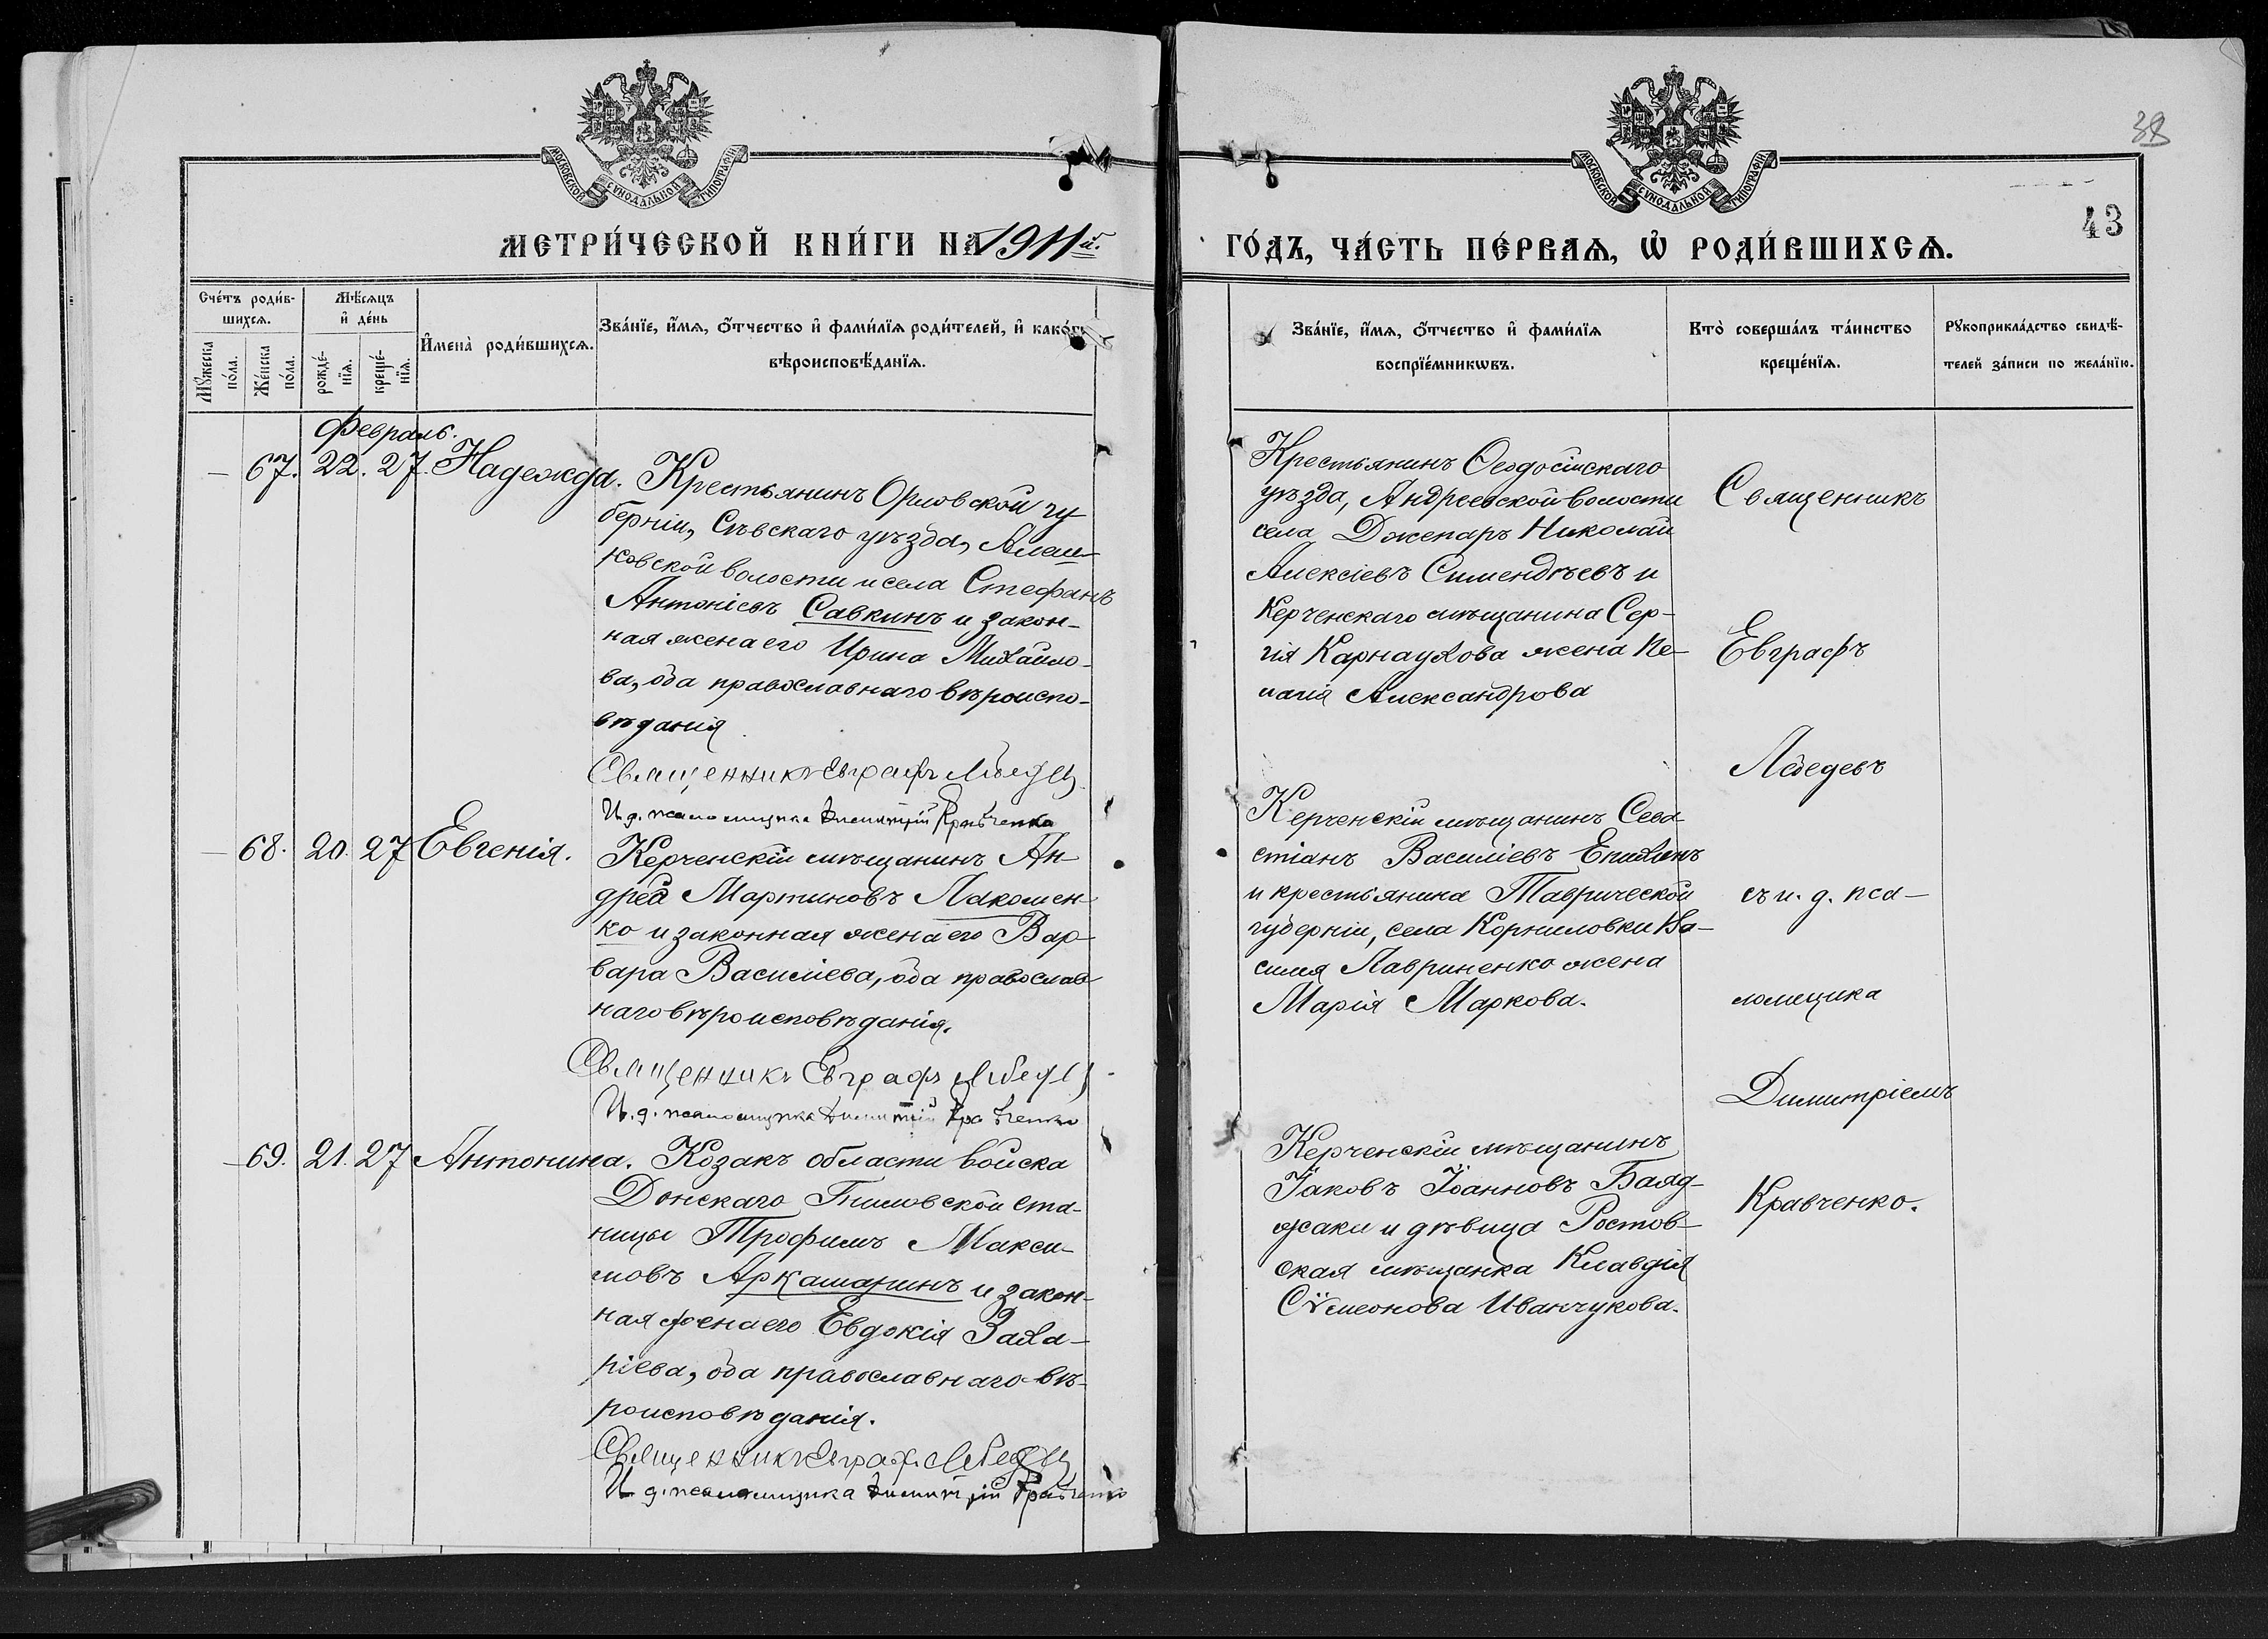 38
43
МОСКОВСКОЙ СѴНОДАЛЬНОЙ ТИПОГРАФІИ
МОСКОВСКОЙ СѴНОДАЛЬНОЙ ТИПОГРАФІИ
МЕТРИ́ЧЕСКОЙ КНИ́ГИ НА 1911й.
ГО́ДЪ, ЧА́СТЬ ПЕ́РВАѦ, Ѡ҆ РОДИ́ВШИХСѦ.
Сче́тъ роди́в-
шихсѧ.
Мꙋ́жеска
по́ла.
Же́нска
по́ла.
Мѣ́сѧцъ
и҆ де́нь
рожде́-
нїѧ.
креще́-
нїѧ.
И҆мена̀ роди́вшихсѧ.
Зва́нїе, и҆́мѧ, ѻ҆́тчество и҆ фами́лїѧ роди́телей, и҆ како́гѡ
вѣроисповѣ́данїѧ.
Зва́нїе, и҆́мѧ, ѻ҆́тчество и҆ фами́лїѧ
воспрїе́мникѡвъ.
Кто̀ соверша́лъ та́инство
креще́нїѧ.
Рꙋкоприкла́дство свидѣ́-
телей за́писи по жела́нїю.
Февраль.
— 67. 22. 27. Надежда.
Крестьянинъ Орловской гу
берніи, Сѣвскаго уѣзда, Алеш-
ковской волости и села Стефанъ
Антоніевъ Савкинъ и закон-
ная жена его Ирина Михайло-
ва, оба православнаго вѣроиспо-
вѣданія
Священникъ Евграфъ Лебедевъ
И.д. псаломщика Димитрій Кравченко
Крестьянинъ Ѳеодосійскаго
уѣзда, Андреевской волости
села Джепаръ Николай
Алексіевъ Симендѣевъ и
Керченскаго мѣщанина Сер-
гія Карнаухова жена Пе-
лагія Александрова
Священникъ
Евграфъ
Лебедевъ
съ и. д. пса-
ломщика
Димитріемъ
Кравченко.
— 68. 20. 27 Евгенія.
Керченскій мѣщанинъ Ан-
дрей Мартиновъ Лакомен-
ко и законная жена его Вар-
вара Василіева, оба православ-
наго вѣроисповѣданія.
Священникъ Евграфъ Лебедевъ
И.д. псаломщика Димитрій Кравченко
Керченскій мѣщанинъ Сева-
стіанъ Василіевъ Епихинъ
и крестьянина Таврической
губерніи, села Корниловки Ва-
силія Лавриненко жена
Марія Маркова.
— 69. 21. 27 Антонина.
Козакъ области войска
Донскаго Гниловской ста-
ницы Трофимъ Макси-
мовъ Аркашанинъ и закон-
ная жена его Евдокія Заха-
ріева, оба православнаго вѣ-
роисповѣданія.
Священникъ Евграфъ Лебедевъ
И.д. псаломщика Димитрій Кравченко
Керченскій мѣщанинъ
Іаковъ Іоанновъ Баяд-
жаки и дѣвица Ростов-
ская мѣщанка Клавдія
Сѵмеонова Иванчукова.